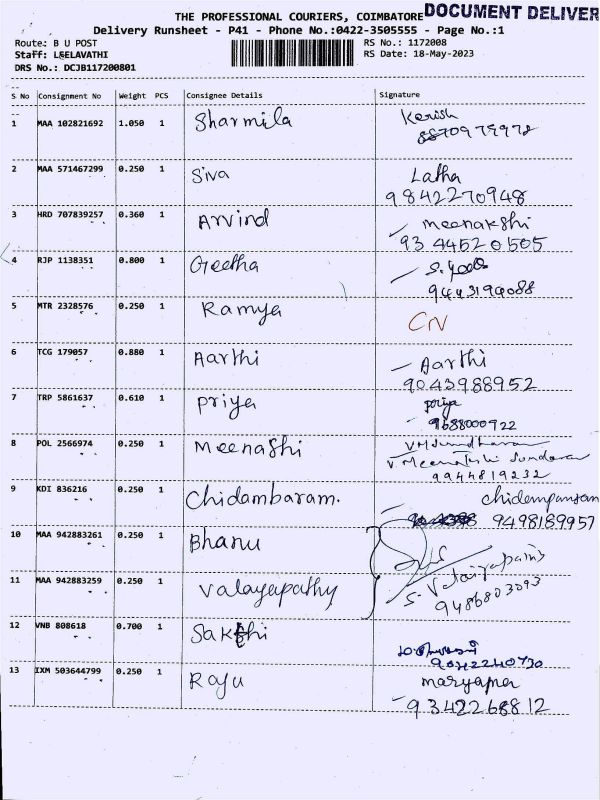 THE PROFESSIONAL COURIERS, COIMBATORE DOCUMENT DELIVER
Delivery Runsheet - P41 - Phone No.:0422-3505555 - Page No.:1
Route: B U POST RS No.: 1172008
Staff: LEELAVATHI RS Date: 18-May-2023
DRS No.: DCJB117200801
S No Consignment No Weight PCS Consignee Details Signature
1 MAA 102821692 1.050 1 Sharmila Kerish
8870979972
2 MAA 571467299 0.250 1 Siva Latha
9842270948
3 HRD 707839257 0.360 1 Arvind Meenakshi
93 44520505
4 RJP 1138351 0.800 1 Geetha
9443194088
5 MTR 2328576 0.250 1 Ramya CN
6 TCG 179057 0.880 1 Aarthi Aarthi
9043988952
7 TRP 5861637 0.610 1 Priya Priya
9688000922
8 POL 2566974 0.250 1 Meenashi VM Sundharam
V. Meenakshi Sundaram
9944819232
9 KDI 836216 0.250 1 Chidambaram. chidempansam
9498189957
10 MAA 942883261 0.250 1 Bhanu
11 MAA 942883259 0.250 1 Valayapathy S. Valaiyapathi
9486803093
12 VNB 808618 0.700 1 Sakthi
9042240730
13 IXM 503644799 0.250 1 Raju maryapra
9342268812